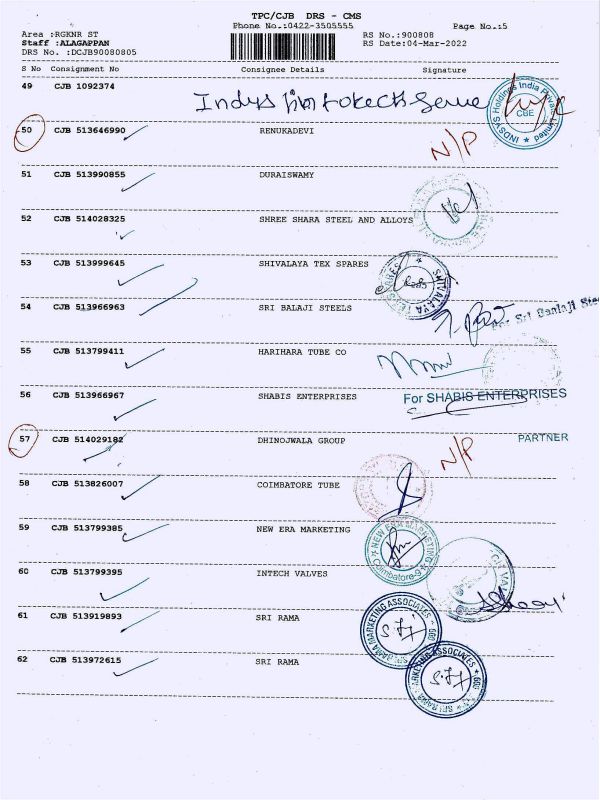 TPC/CJB DRS - CMS
Phone No.:0422-3505555 Page No.:5
Area :RGKNR ST RS No.:900808
Staff :ALAGAPPAN RS Date:04-Mar-2022
DRS No. :DCJB90080805
S No Consignment No Consignee Details Signature
49 CJB 1092374
Indsys
INDSYS Holdings India Private Limited
CBE
50 CJB 513646990 RENUKADEVI N/P
51 CJB 513990855 DURAISWAMY
52 CJB 514028325 SHREE SHARA STEEL AND ALLOYS
53 CJB 513999645 SHIVALAYA TEX SPARES
SHIVALAYA TEX SPARES
54 CJB 513966963 SRI BALAJI STEELS
For Sri Banlaji Stee
55 CJB 513799411 HARIHARA TUBE CO
56 CJB 513966967 SHABIS ENTERPRISES For SHABIS ENTERPRISES
57 CJB 514029182 DHINOJWALA GROUP N/P PARTNER
58 CJB 513826007 COIMBATORE TUBE
59 CJB 513799385 NEW ERA MARKETING
NEW ERA MARKETING
Coimbatore-9
60 CJB 513799395 INTECH VALVES
61 CJB 513919893 SRI RAMA
RAMA MARKETING ASSOCIATES
62 CJB 513972615 SRI RAMA
SRI RAMA MARKETING ASSOCIATES